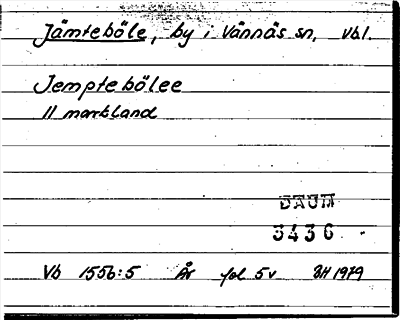 Jämteböle, by i Vännäs sn, Vbl.
Jemptebölee
11 markland
DAUM
3436
Vb 1556:5 År fol 5v BH 1979